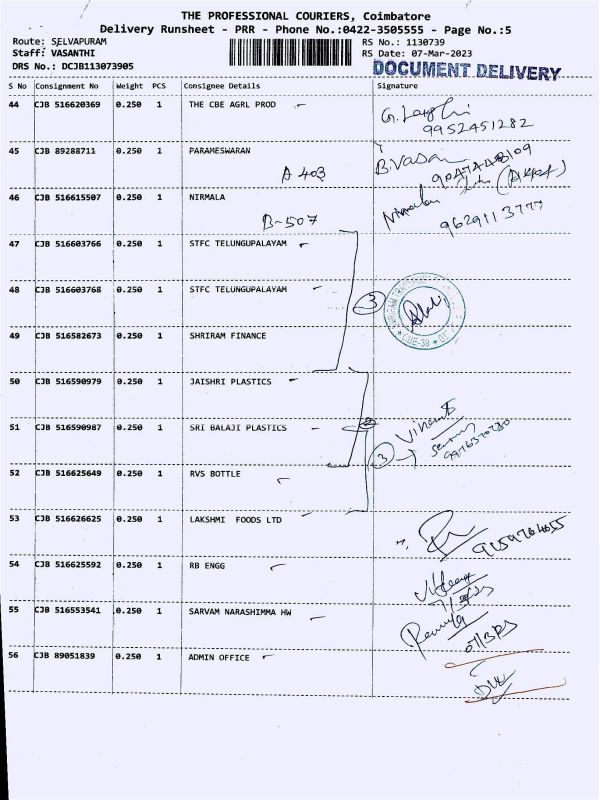 THE PROFESSIONAL COURIERS, Coimbatore
Delivery Runsheet - PRR - Phone No.:0422-3505555 - Page No.:5
Route: SELVAPURAM RS No.: 1130739
Staff: VASANTHI RS Date: 07-Mar-2023
DRS No.: DCJB113073905 DOCUMENT DELIVERY
S No Consignment No Weight PCS Consignee Details Signature
44 CJB 516620369 0.250 1 THE CBE AGRL PROD
9952451282
45 CJB 89288711 0.250 1 PARAMESWARAN B.Vasan
A 403
46 CJB 516615507 0.250 1 NIRMALA
B-507 9629113777
47 CJB 516603766 0.250 1 STFC TELUNGUPALAYAM
48 CJB 516603768 0.250 1 STFC TELUNGUPALAYAM 3
49 CJB 516582673 0.250 1 SHRIRAM FINANCE
50 CJB 516590979 0.250 1 JAISHRI PLASTICS
51 CJB 516590987 0.250 1 SRI BALAJI PLASTICS
3
52 CJB 516625649 0.250 1 RVS BOTTLE
53 CJB 516626625 0.250 1 LAKSHMI FOODS LTD
54 CJB 516625592 0.250 1 RB ENGG
55 CJB 516553541 0.250 1 SARVAM NARASHIMMA HW
56 CJB 89051839 0.250 1 ADMIN OFFICE